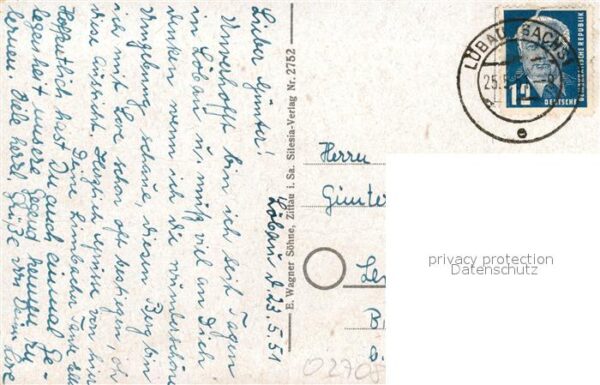 Löbau d 23.5.51
Lieber Günter!
Unverhofft bin ich seit Tagen
in Löbau u. muß viel an Dich
denken wenn ich die wunderschöne
Umgebung schaue, diesen Berg bin
ich mit Lore schon oft bestiegen, ich
diese Aussicht. Herzlich grüße von hier
Deine Limbacher Tante Elli
Hoffentlich hast Du auch einmal Ge-
legenheit unsere Gegend kennen zu
lernen. Viele herzl. Grüße von Deiner Lore
E. Wagner Söhne, Zittau i. Sa. Silesia-Verlag Nr. 2752
Herrn
Günter
LÖBAU (SACHS)
25.5
e
12
DEUTSCHE
DEMOKRATISCHE REPUBLIK
privacy protection
Datenschutz
02708